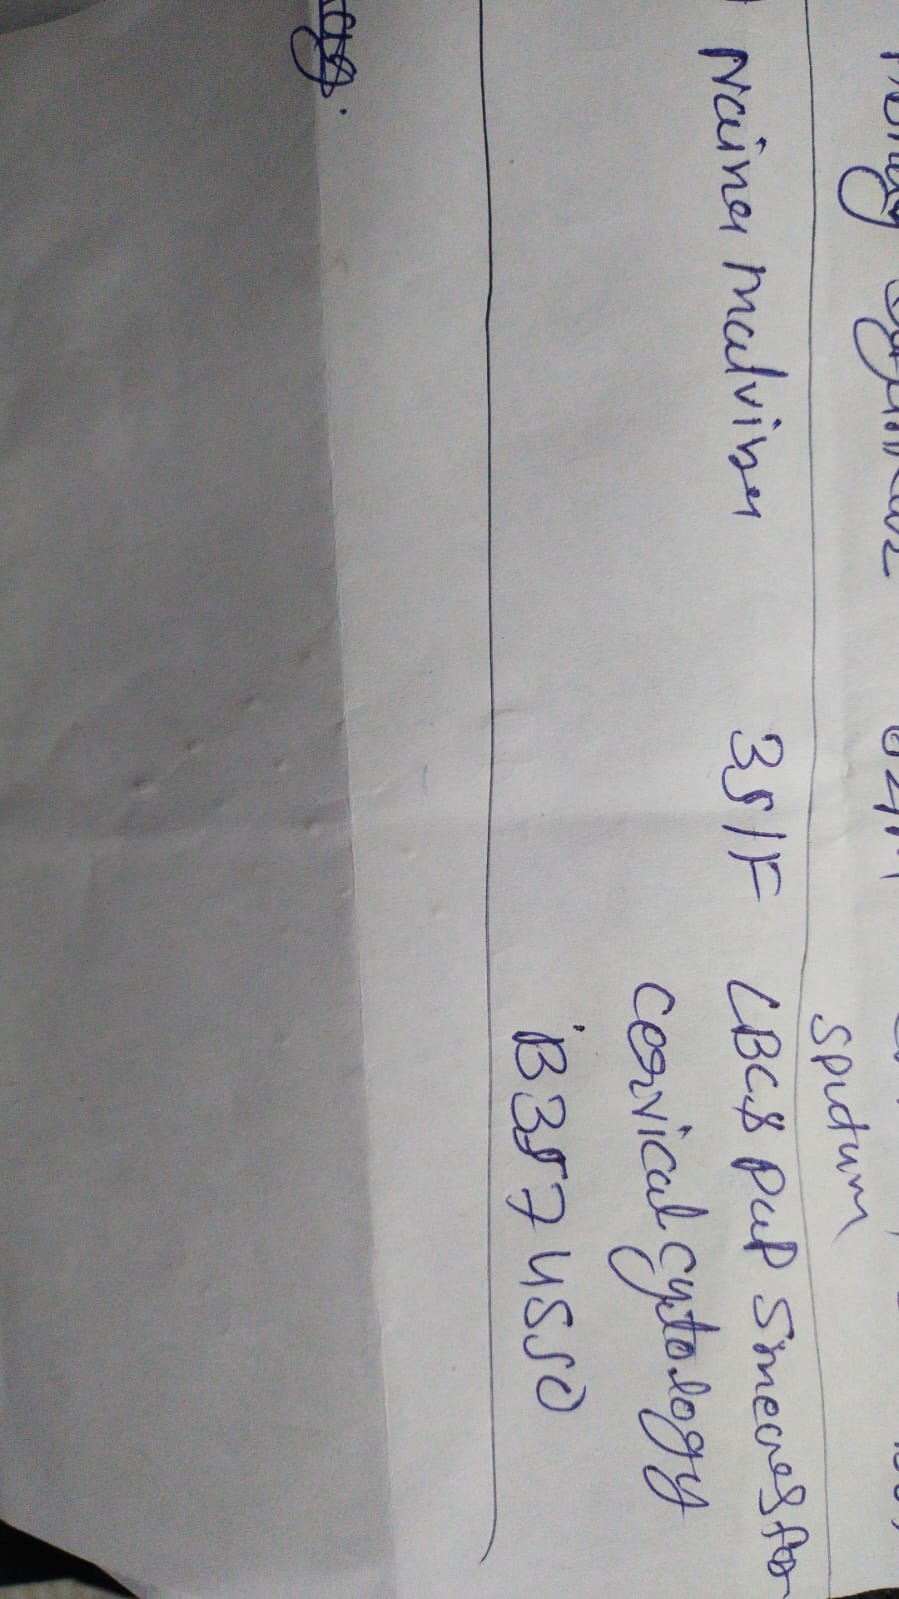 sputum
Naina malviya 35/F LBC & PaP Smear for
cervical cytology
iB3574550